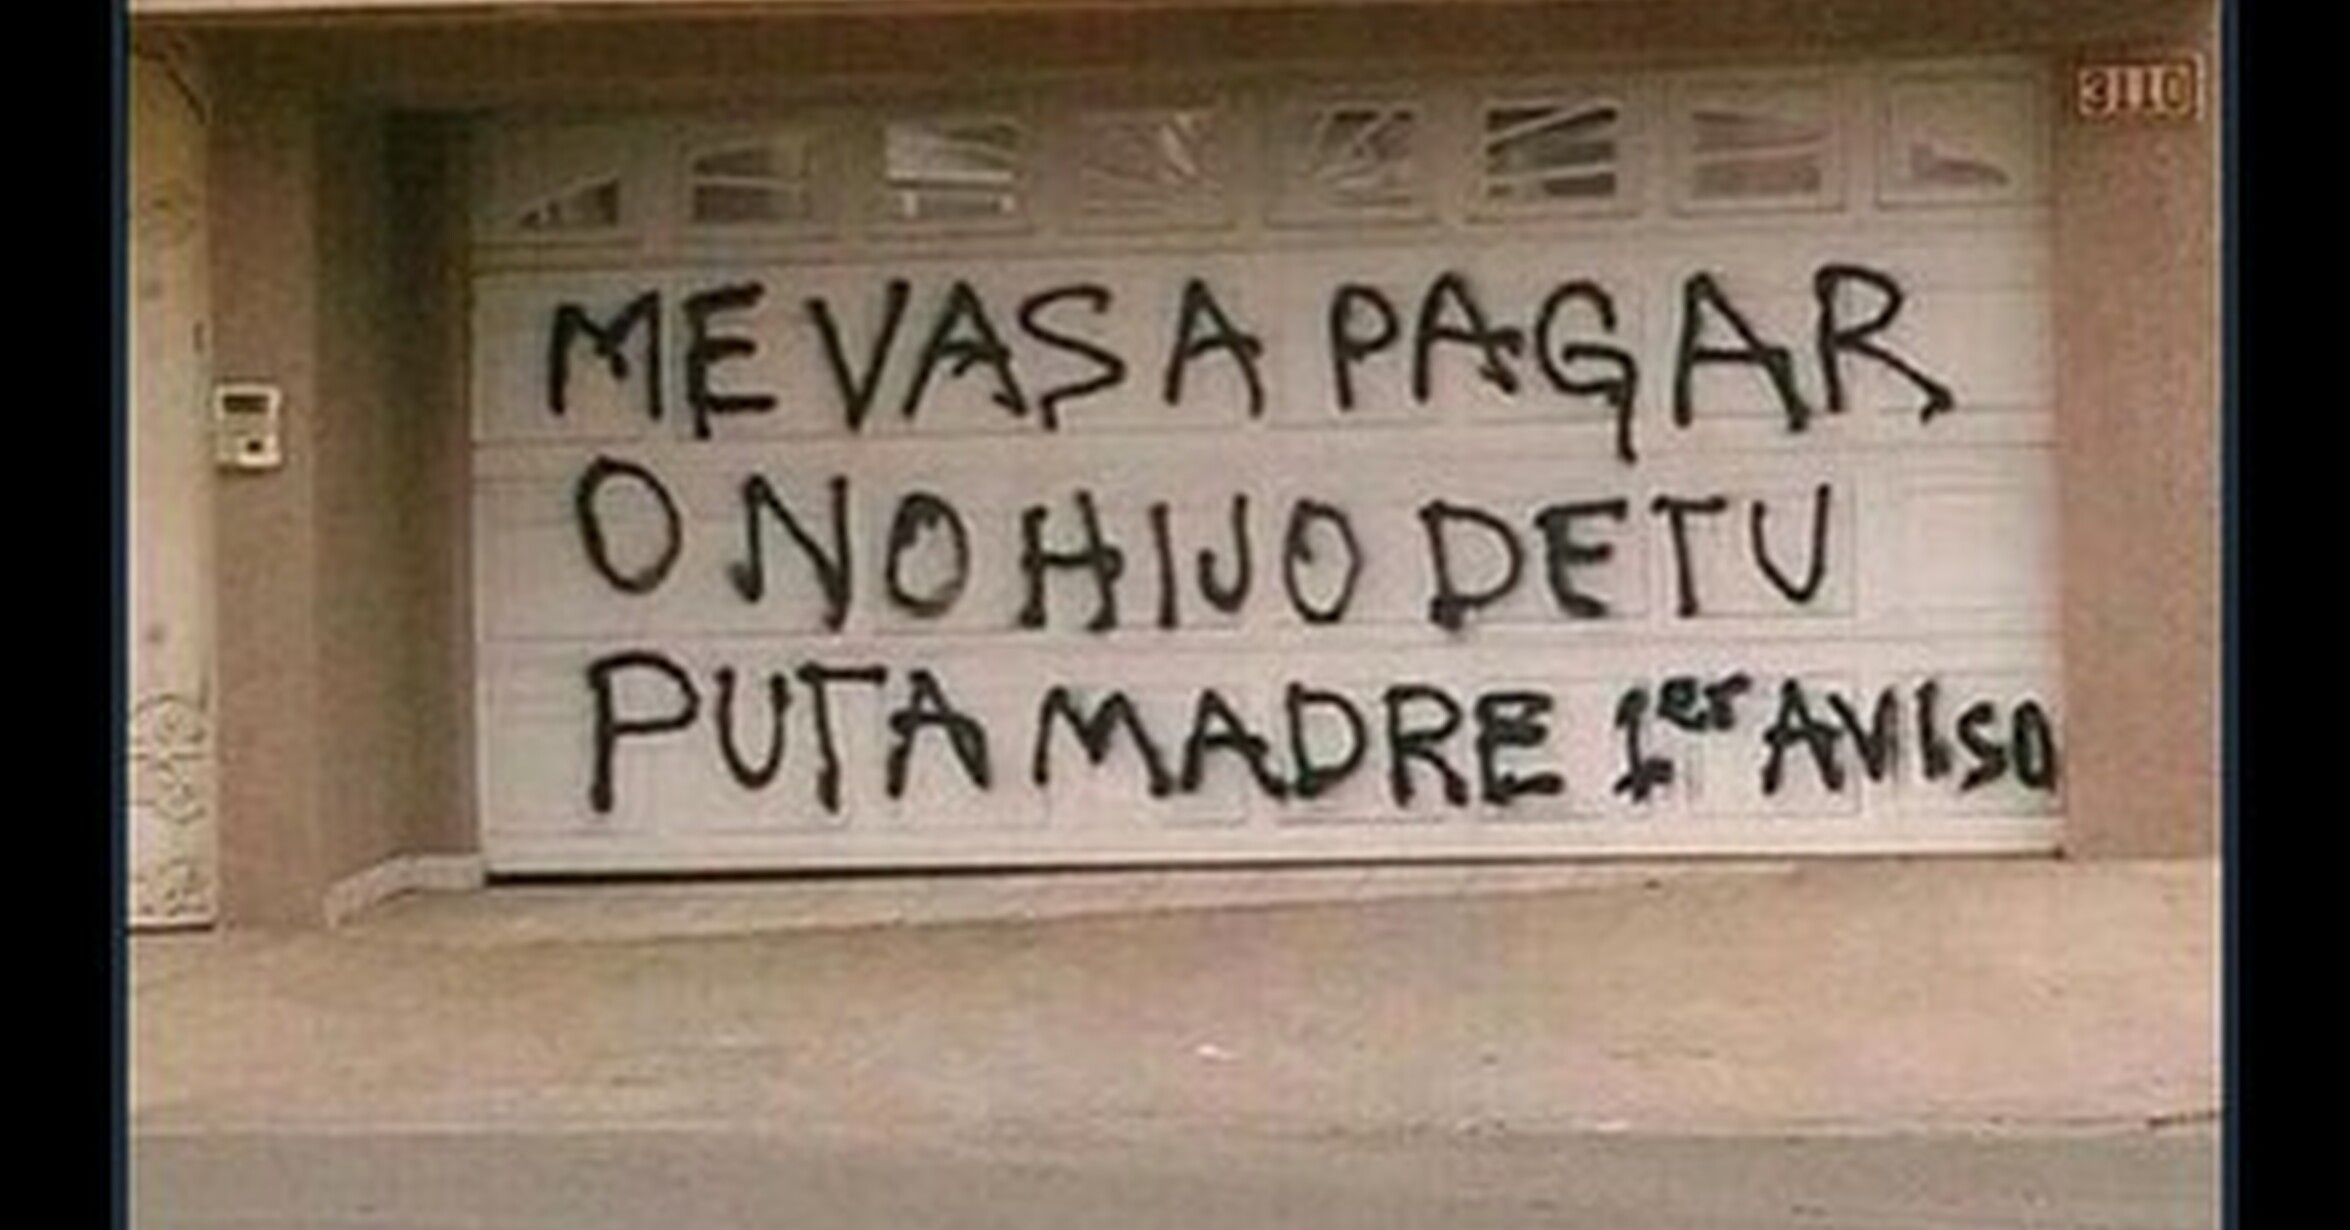 3110
ME VAS A PAGAR
O NO HIJO DE TU
PUTA MADRE 1er AVISO